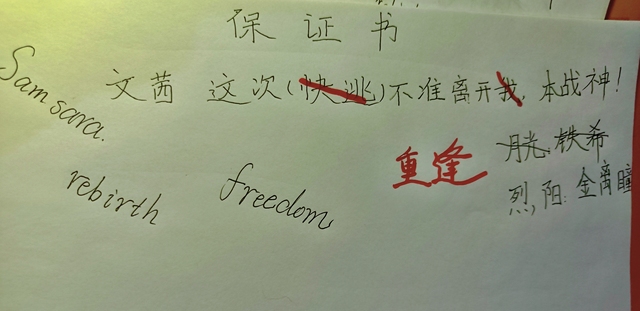 保证书
文茜 这次(快逃)不准离开我,本战神!
Samsara.
rebirth
freedom
重逢
月光:铁希
烈,阳:金离瞳